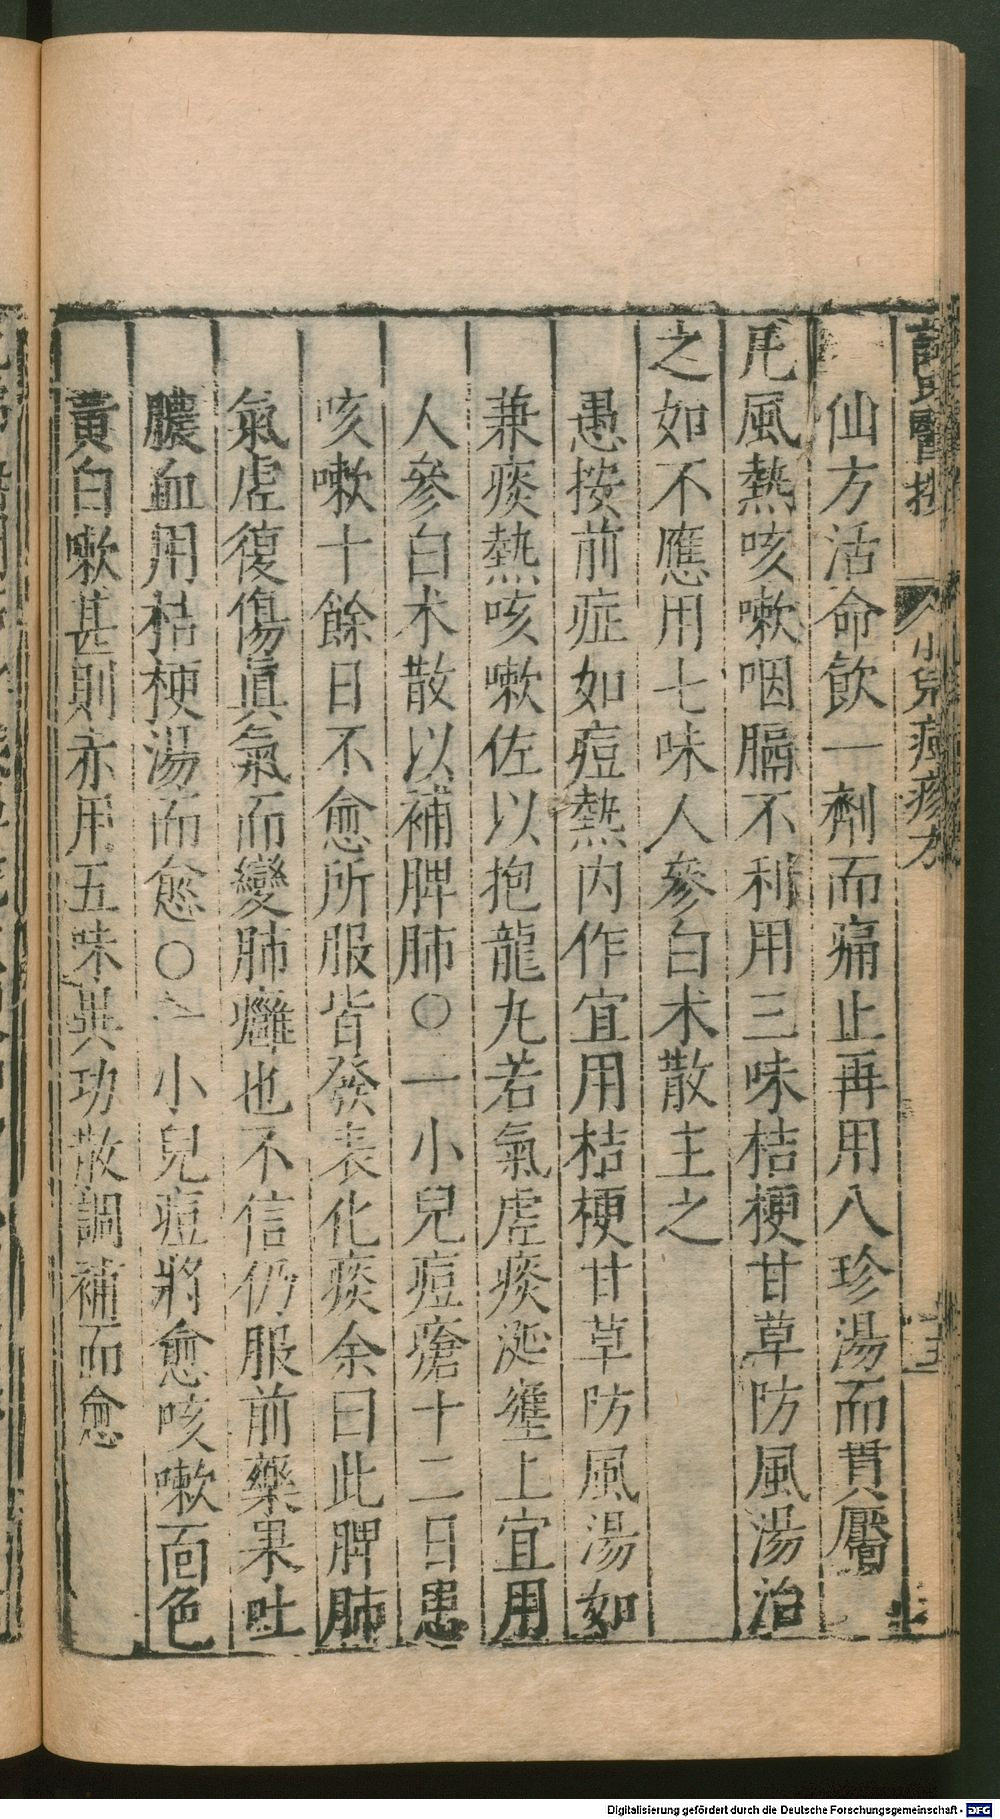 薛氏醫按 小兒痘疹方
仙方活命飲一劑而痛止再用八珍湯而貫靨
凡風熱咳嗽咽膈不利用三味桔梗甘草防風湯治
之如不應用七味人參白术散主之
愚按前症如痘熱内作宜用桔梗甘草防風湯如
兼痰熱咳嗽佐以抱龍丸若氣虛痰涎壅上宜用
人參白术散以補脾肺○一小兒痘瘡十二日患
咳嗽十餘日不愈所服皆發表化痰余曰此脾肺
氣虛復傷眞氣而變肺癰也不信仍服前藥果吐
膿血用桔梗湯而愈○一小兒痘將愈咳嗽面色
黃白嗽甚則赤用五味異功散調補而愈
Digitalisierung gefördert durch die Deutsche Forschungsgemeinschaft - DFG